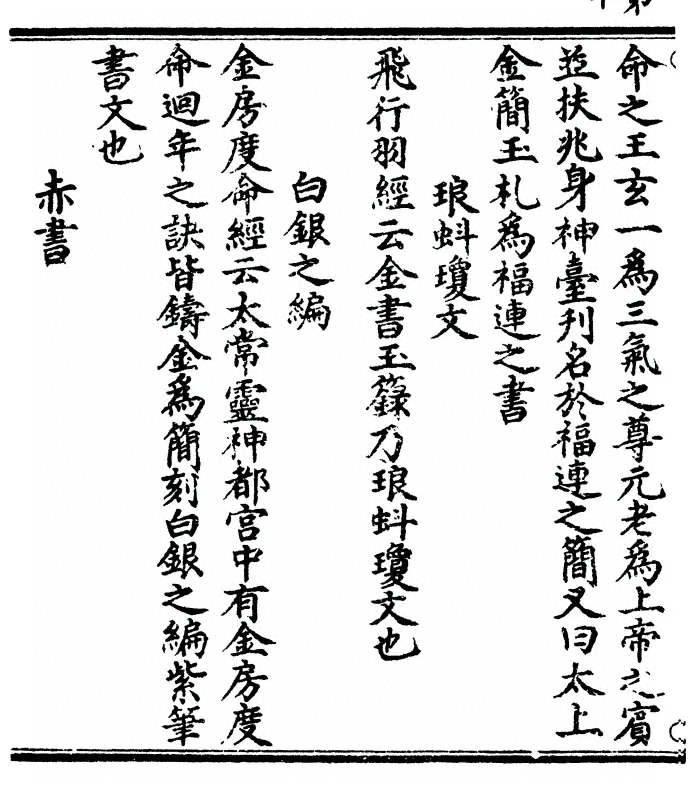 命之王玄一爲三氣之尊元老爲上帝之賓
並扶兆身神臺刋名於福連之簡又曰太上
金簡玉札爲福連之書
琅蚪瓊文
飛行羽經云金書玉籙乃琅蚪瓊文也
白銀之編
金房度命經云太常靈神都宮中有金房度
命迴年之訣皆鑄金爲簡刻白銀之編紫筆
書文也
赤書